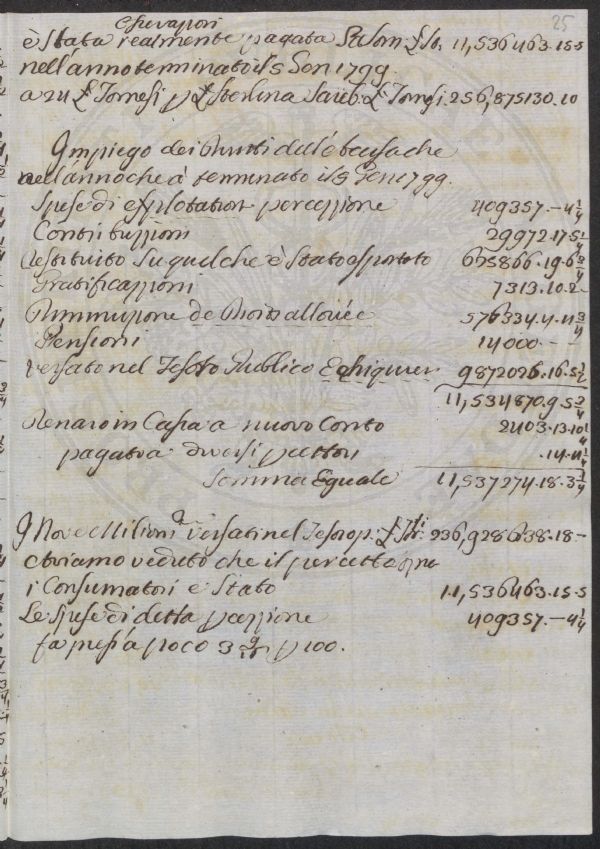 25
è Stata realmente pagata St. 11,536463.15.5
nell'anno terminato il 5 Gen 1799.
a 24 £ Tornesi p £ Sterlina Sareb. £ Tornesi 256,875130.10
Impiego dei
nell'anno che à terminato il 5 Gen 1799.
Spese di explotation percezzione 409357.-4 1/4
Contribuzzioni 29972.17.5 1/4
restituito su quel che è Stato esportato 675866.19.6 3/4
Gratificazzioni 7313.10.2-
de Droits allouée 576334.4.11 3/4
Pensioni 14000.--
versato nel Tesoro Publico Echiquier 9872026.16.5 1/2
11,534870.9.5 3/4
Denaro in Cassa a nuovo Conto 2403.13.10 1/4
pagati a diversi .14.11 1/4
Somma Eguale 11,537274.18.3 1/4
9 Nove Milioni versati nel Tesoro p. 236,928638.18-
abbiamo veduto che il
i Consumatori è Stato 11,536463.15.5
Le Spese di detta 409357.-4 1/4
fa presso a poco 3 p 100.